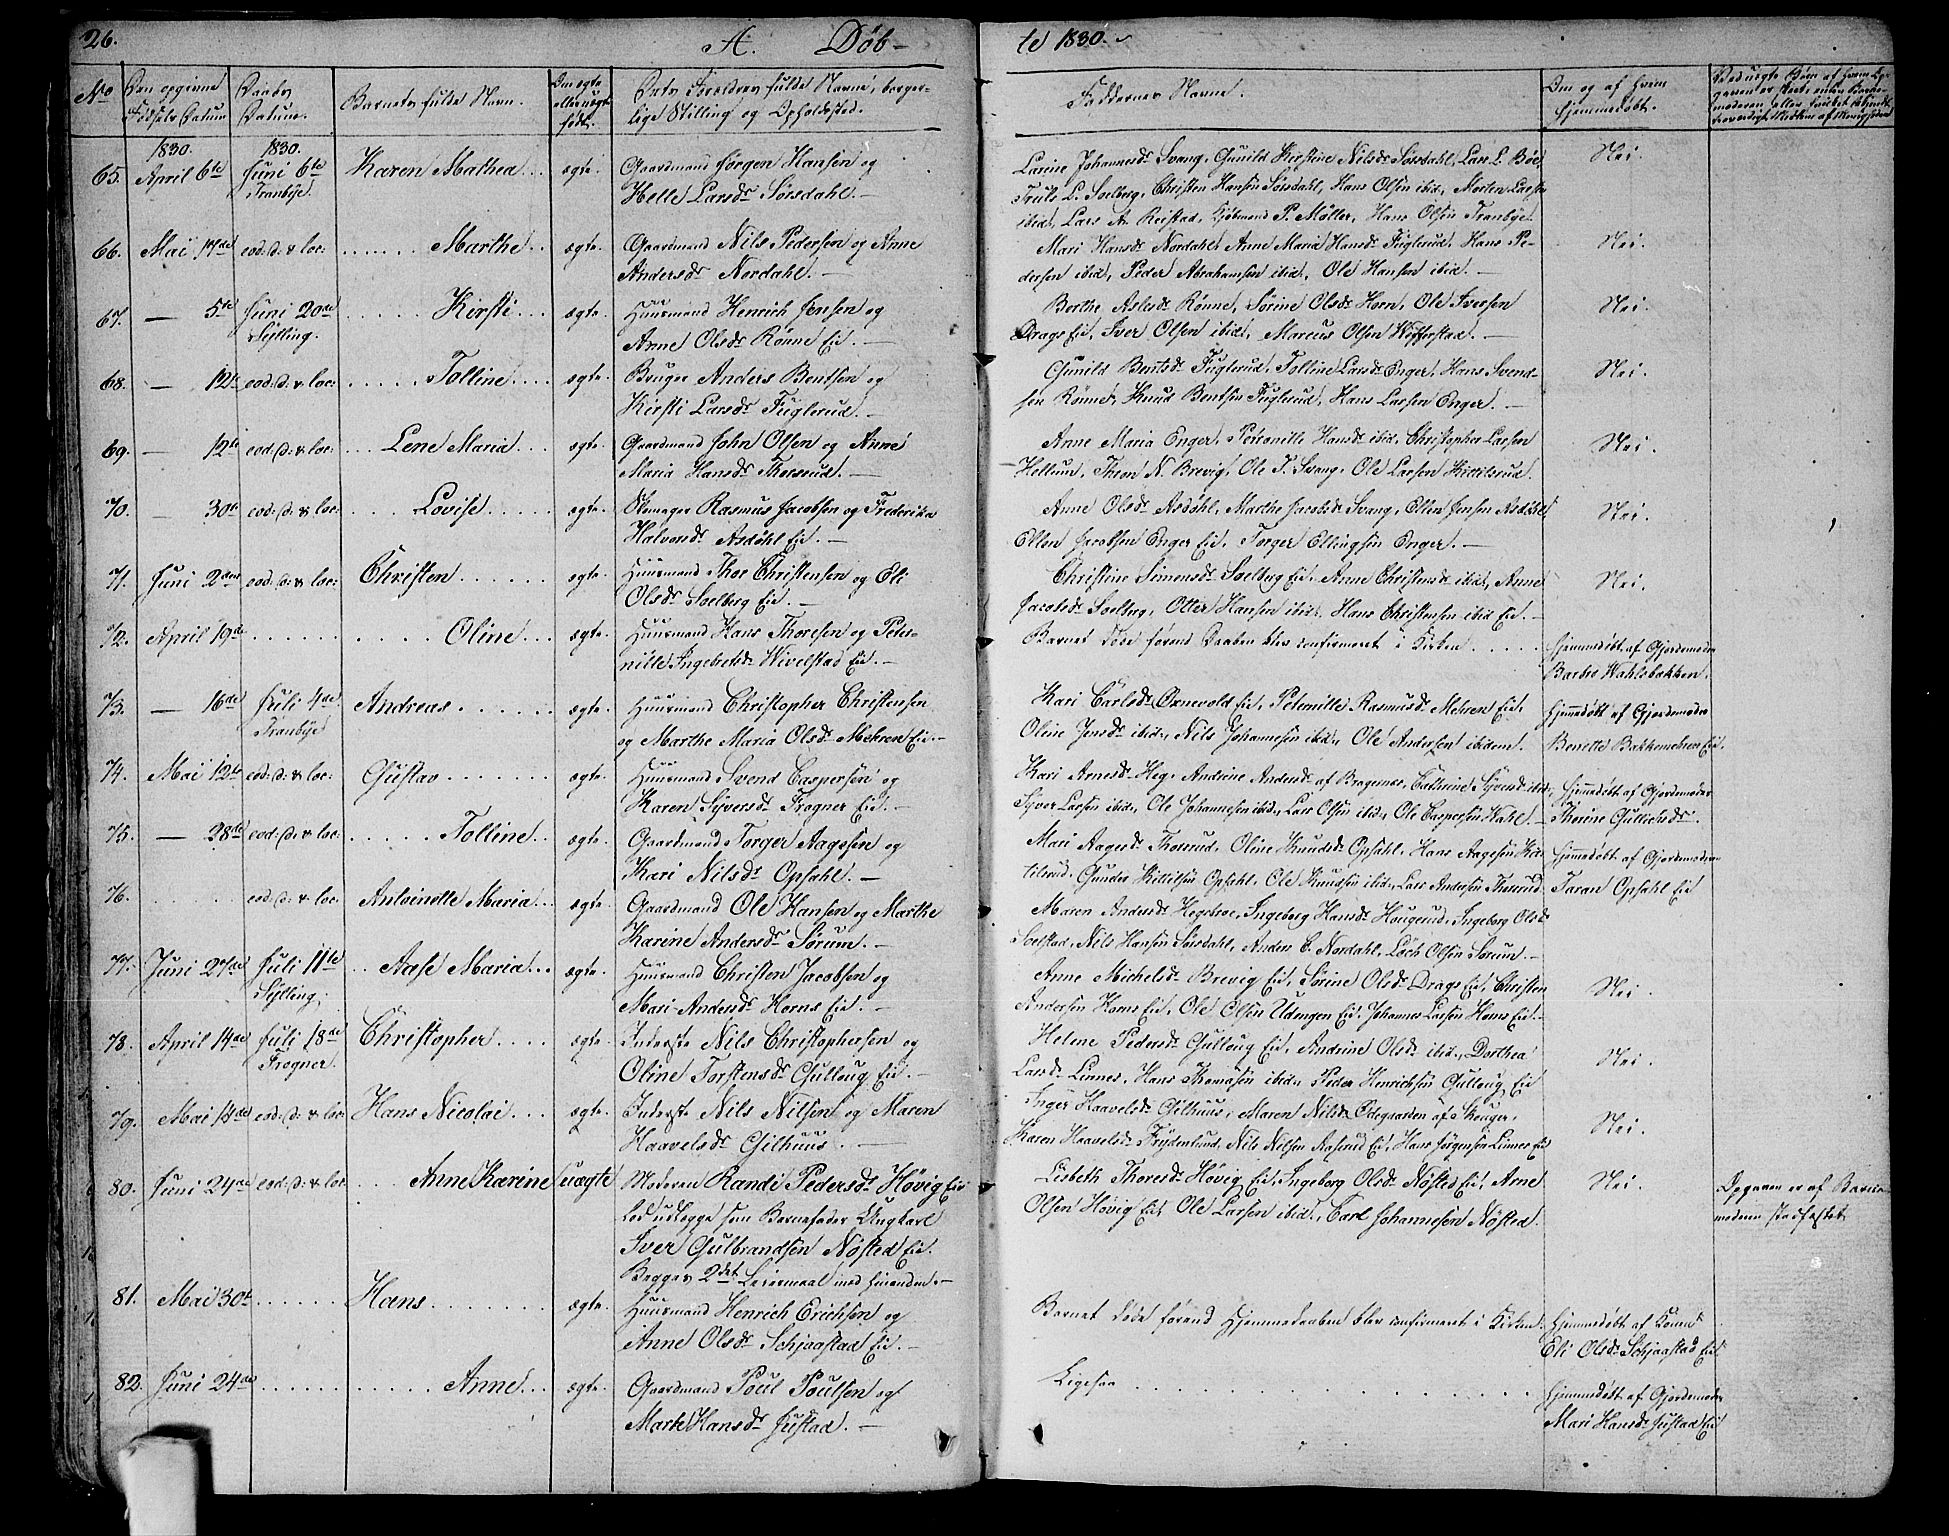 26.
A. Döb-
te 1830.
No
Den opgivne Fødsels Datum
Daabs Datum.
Barnets fulde Navn.
Om ægte eller uægte født.
Dets Forældres fulde Navne, borger-
lige Stilling og Opholdssted.
Faddernes Navne.
Om og af hvem
hjemmedøbt.
1830.
1830.
65. April 6te Juni 6te Karen Mathea ægte. Gaardmand Jørgen Hansen og
Tranbye. Helle Larsdr Sørsdahl. —
Larine Johannesdr Svang, Gunild Kirstine Nilsdr Sørsdahl, Lars L. Böe, Nei.
Truls L. Solberg, Christen Hansen Sørsdahl, Hans Olsen ibid, Morten Larsen
ibid, Lars A. Reistad, Kjöbmand P. Møller, Hans Olsen Tranbye.
66. Mai 14de eod: d: & loc: Marthe ægte. Gaardmand Nils Pedersen og Anne
Andersdr Nordahl. —
Mari Hansdr Nordahl, Anne Maria Hansdr Fuglerud, Hans Pe- Nei.
dersen ibid, Peder Abrahamsen ibid, Ole Hansen ibid. —
67. — 5te Juni 20de Kirsti ægte. Huusmand Henrich Jensen og
Sylling. Anne Olsdr Rønne Eie. —
Berthe Aslesdr Rönne, Sörine Olsdr Horn, Ole Iversen Nei.
Drags Eie, Iver Olsen ibid, Marcus Olsen
68. — 12te eod: d: & loc: Tolline ægte. Bruger Anders Bentsen og
Kirsti Larsdr Fuglerud. —
Gunild Bentsdr Fuglerud, Tolline Larsdr Enger, Hans Svend- Nei.
sen Rönne, Knud Bentsen Fuglerud, Hans Larsen Enger. —
69. — 12te eod: d: & loc: Lene Maria ægte. Gaardmand John Olsen og Anne
Maria Hansdr Thorsrud. —
Anne Maria Enger, Petronille Hansdr ibid, Christopher Larsen Nei.
Hellum, Thron N. Brevig, Ole T. Svang, Ole Larsen Kittilsrud.
70. — 30te eod: d: & loc: Lovise ægte. Skomager Rasmus Jacobsen og Frederika
Halvorsdr Asdöhl Eie. —
Anne Olsdr Asdöhl, Marthe Jacobsdr Svang, Ellen Jensen Asdöhl, Nei.
Ellen Jacobsen Enger Eie, Torger Ellingsen Enger. —
71. Juni 2den eod: d: & loc: Christen ægte. Huusmand Thor Christensen og Eli
Olsdr Soelberg Eie. —
Christine Simensdr Soelberg Eie, Anne Christensdr ibid, Anne Nei.
Jacobsdr Soelberg, Otter Hansen ibid, Hans Christensen ibid Eie. —
72. April 19de Oline ægte. Huusmand Hans Thoresen og Peter-
nille Ingebretsdr Wivelstad Eie. —
Barnet døde førend Daaben blev confirmeret i Kirken Hjemmedøbt af Gjordemoder
Barbro Wahlsbakken.
73. — 16de Juli 4de Andreas ægte. Huusmand Christopher Christensen
Tranbye og Marthe Maria Olsdr Mehren Eie. —
Kari Carlsdr Oxnevold Eie, Peternille Rasmusdr Mehren Eie, Hjemmedøbt af Gjordemoder
Oline Jensdr ibid, Nils Johannesen ibid, Ole Andersen ibidem. Benette Bakkemehren Eie.
74. Mai 12te eod: d: & loc: Gustav ægte. Huusmand Svend Caspersen og
Karen Syversdr Frogner Eie. —
Kari Arnesdr Heg, Andrine Andersdr af Bragernæs, Cathrine Syversdr ibid, Hjemmedøbt af Gjordemoder
Syver Larsen ibid, Ole Johannesen ibid, Lars Olsen ibid, Ole Caspersen Wahl. — Thorine Gullichsdr.
75. — 28de eod: d: & loc: Tolline ægte. Gaardmand Torger Aagesen og
Kari Nilsdr Opsahl. —
Mari Aagesdr Thorsrud, Oline Knudsdr Opsahl, Hans Aagesen Kit- Hjemmedøbt af Gjordemoder
tilsrud, Gunder Kittilsen Opsahl, Ole Knudsen ibid, Lars Andersen Thorsrud. Taran Opsahl Eie
76. eod: d: & loc: Antoinette Maria ægte. Gaardmand Ole Hansen og Marthe
Karine Andersdr Sörum. —
Maren Andersdr Hegsbroe, Ingeborg Hansdr Haugerud, Ingeborg Olsdr
Soelstad, Nils Hansen Sörsdahl, Anders C. Nordahl, Loch Olsen Sörum. —
77. Juni 27de Juli 11te Aase Maria ægte. Huusmand Christen Jacobsen og
Sylling. Mari Andersdr Horns Eie. —
Anne Michelsdr Brevig Eie, Sörine Olsdr Drags Eie, Christen Nei.
Andersen Horns Eie, Ole Olsen Udengen Eie, Johannes Larsen Horns Eie. —
78. April 14de Juli 18de Christopher ægte. Inderste Nils Christophersen og
Frogner. Oline Torstensdr Gulloug Eie. —
Helene Pedersdr Gulloug Eie, Andrine Olsdr ibid, Dorthea Nei.
Larsdr Linnes, Hans Thomasen ibid, Peder Henrichsen Gulloug Eie
79. Mai 14de eod: d: & loc: Hans Nicolai ægte. Inderste Nils Nilsen og Maren
Haavelsdr Gilhuus. —
Inger Haavelsdr Gilhuus, Maren Nilsdr Ödegaarden af Skouger, Nei.
Karen Haavelsdr Frydenlund, Nils Nilsen Aaserud Eie, Hans Jörgensen Linnes Eie
80. Juni 24de eod: d: & loc: Anne Karine uægte Moderen Randi Pedersdr Hövig Eie
lod udlægge som Barnefader Ungkarl
Iver Gulbrandsen Nösted Eie.
Begges 2det Leiermaal med hinanden. —
Lisbeth Thoresdr Hövig Eie, Ingeborg Olsdr Nösted Eie, Arne Nei. Opgaven er af Barne-
Olsen Hövig Eie, Ole Larsen ibid, Carl Johannesen Nösted. moderen stadfæstet
81. Mai 30te Hans ægte. Huusmand Henrich Erichsen og
Anne Olsdr Schjaastad Eie. —
Barnet døde førend Hjemmedaaben blev confirmeret i Kirken. Hjemmedøbt af Kone
Eli Olsdr Schjaastad Eie.
82. Juni 24de Anne ægte. Gaardmand Poul Poulsen og
Marte Hansdr Justad. —
Ligesaa Hjemmedøbt af Gjordemoder
Mari Hansdr Justad Eie